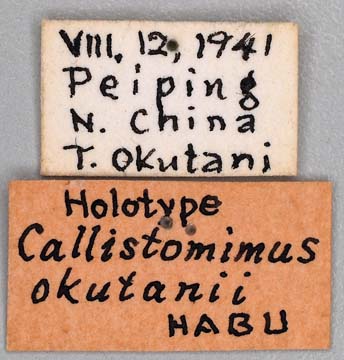 VIII, 12, 1941
Peiping
N. China
T. Okutani
Holotype
Callistomimus
okutanii
HABU